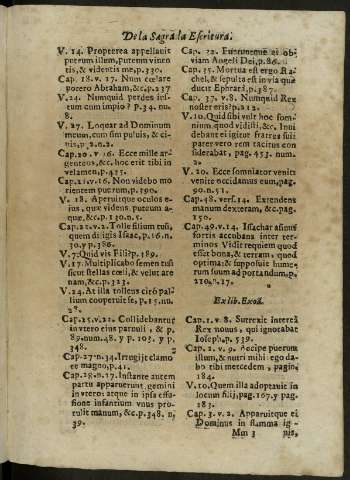 De la Sagrada Escritura.
V. 14. Propterea appellauit
puteum illum, puteum viuen
tis, & videntis me, p.330.
Cap. 18. v. 17. Num cœlare
potero Abraham, &c. p.237
V.24. Numquid perdes ius-
tum cum impio? p.34. nu.
8.
V. 27. Loquar ad Dominum
meum, cum sim puluis, & ci-
nis, p.202.
Cap.20. v 16. Ecce mille ar-
genteos, &c. hoc erit tibi in
velamen, p.425.
Cap.21.v.16. Non videbo mo
rientem puerum, p.190.
V. 18. Aperuitque oculos e-
ius, quæ videns puteum a-
quæ, &c. p 130. n.5.
Cap.22.v.2. Tolle filium tuũ,
quem diligis Isac, p.16. n.
30. y p.386.
V.7. Quid vis Fili? p.189.
V.17. Multiplicabo semen tuũ
sicut stellas cœli, & velut are
nam, &c. p.323.
V.24. At illa tollens cito pal-
lium cooperuit se, p.15. nu.
28.
Cap.25. v.22. Collidebantur
in vtero eius paruuli, & p.
89. num.48. y p. 103. y p.
348.
Cap.27. n.34. Irrugijt clamo
re magno, p.41.
Instante autem
partu apparuerunt gemini
in vtero: atque in ipsa effu-
sione infantium vnus pro-
tulit manum, &c p.348. n.
39.
Cap. 32. Fueruntque ei ob-
viam Angeli Dei, p.86.
Cap. 35. Mortua est ergo Ra-
chel, & sepulta est in via quæ
ducit Ephratã, p.387.
Cap. 37. v.8. Numquid Rex
noster eris? p.212.
V.10. Quid sibi vult hoc som-
nium, quod vidisti, &c. Inui
debant ei igitur fratres sui:
pater vero rem tacitus con
siderabat, pag. 453. num.
2.
V. 20. Ecce somniator venit
venite occidamus eum, pag.
90. n.51.
Cap.48. vers.14. Extendens
manum dexteram, &c. pag.
150.
Cap.49. v.14. Issachar asinus
fortis accubans inter ter-
minos Vidit requiem quod
esset bona, & terram, quod
optima: & supposuit hume-
rum suum ad portandum, p.
210. n.17.
Ex lib. Exod.
Cap.1. v 8. Surrexit interea
Rex nouus, qui ignorabat
Ioseph, p.539.
Cap.2. v.9. Accipe puerum
istum, & nutri mihi: ego da-
bo tibi mercedem, pagin.
184.
V.10. Quem illa adoptauit in
locum filij, pag.167. y pag.
187.
Cap.3. v.2. Apparuitque ei
Dominus in flamma ig-
Mm 3 nis,